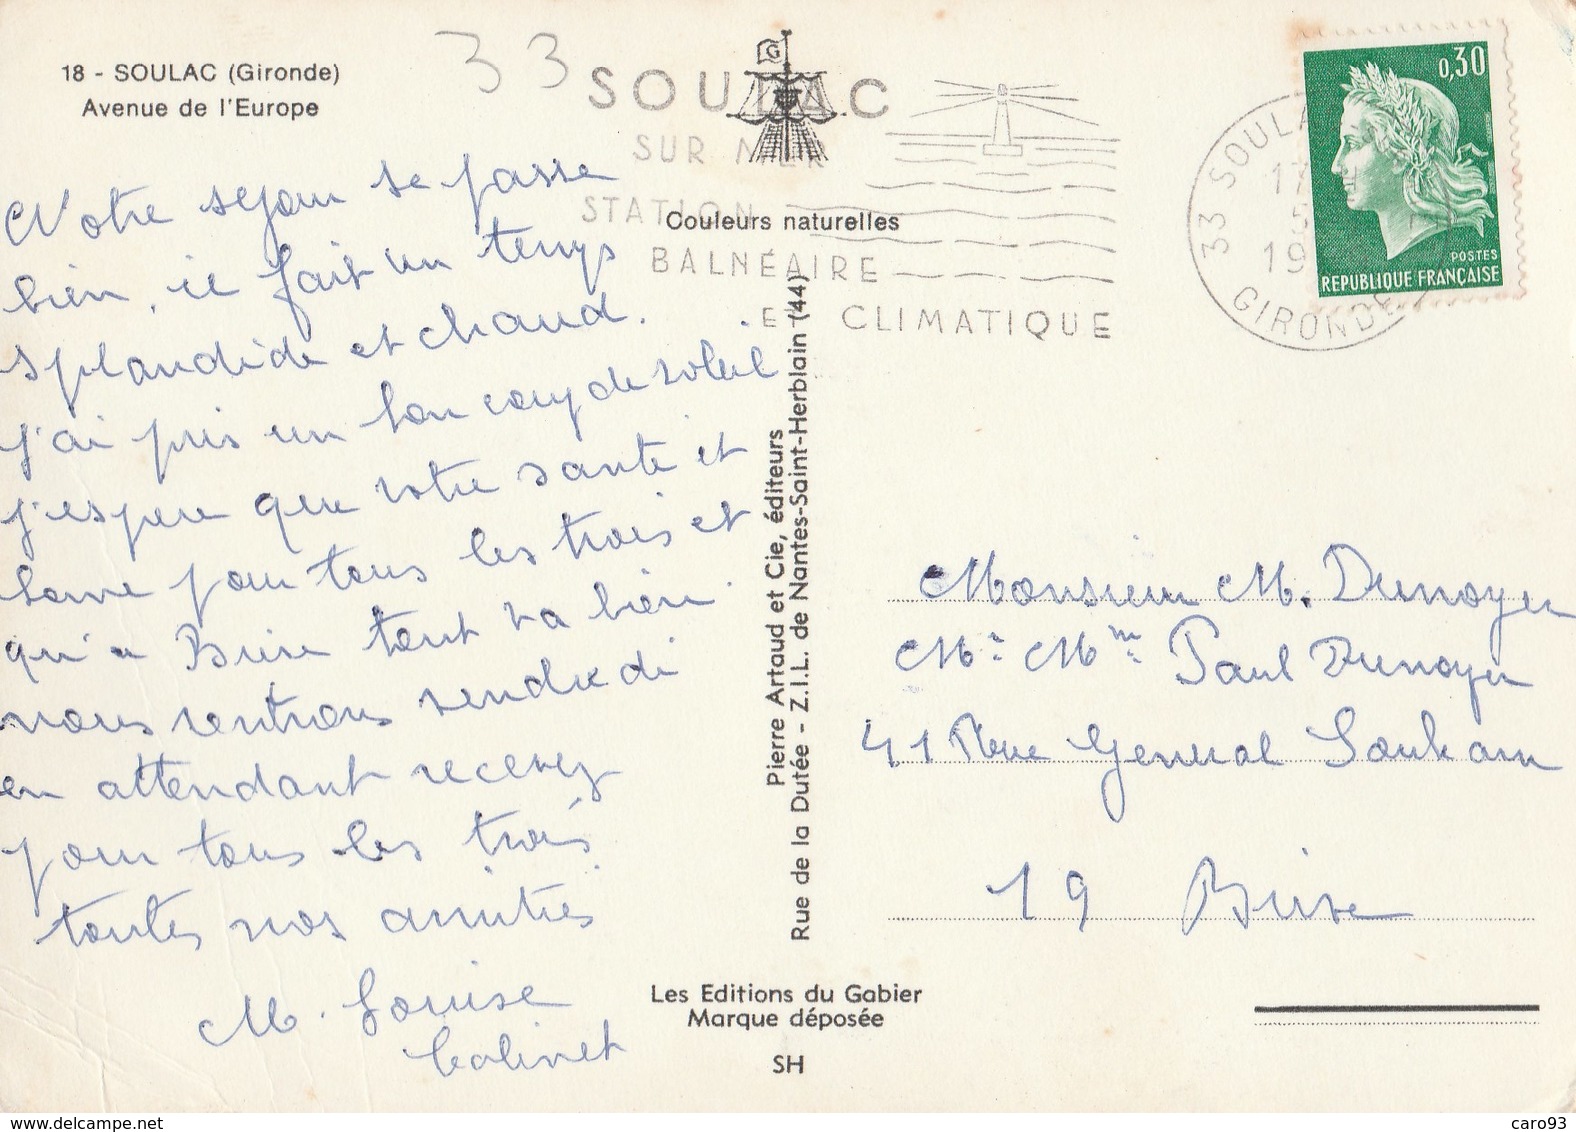 18 - SOULAC (Gironde)
Avenue de l'Europe
33
SOULAC
SUR MER
STATION
BALNÉAIRE
ET CLIMATIQUE
G
Couleurs naturelles
33 SOULAC
17
5
19
GIRONDE
0,30
POSTES
REPUBLIQUE FRANÇAISE
Notre sejour se passe
bien, il fait un temps
splandide et chaud.
j'ai pris un bon coup de soleil
j'espere que votre santé et
bonne pour tous les trois et
qu'a Brive tout va bien
nous rentrons vendredi
en attendant recevez
pour tous les trois
toutes nos amitiés
M. Louise
Colinet
Pierre Artaud et Cie, éditeurs
Rue de la Dutée - Z.I.L. de Nantes-Saint-Herblain (44)
Monsieur M. Dunoyer
Mr Mme Paul Dunoyer
41 Rue General Souham
19 Brive
Les Editions du Gabier
Marque déposée
SH
caro93